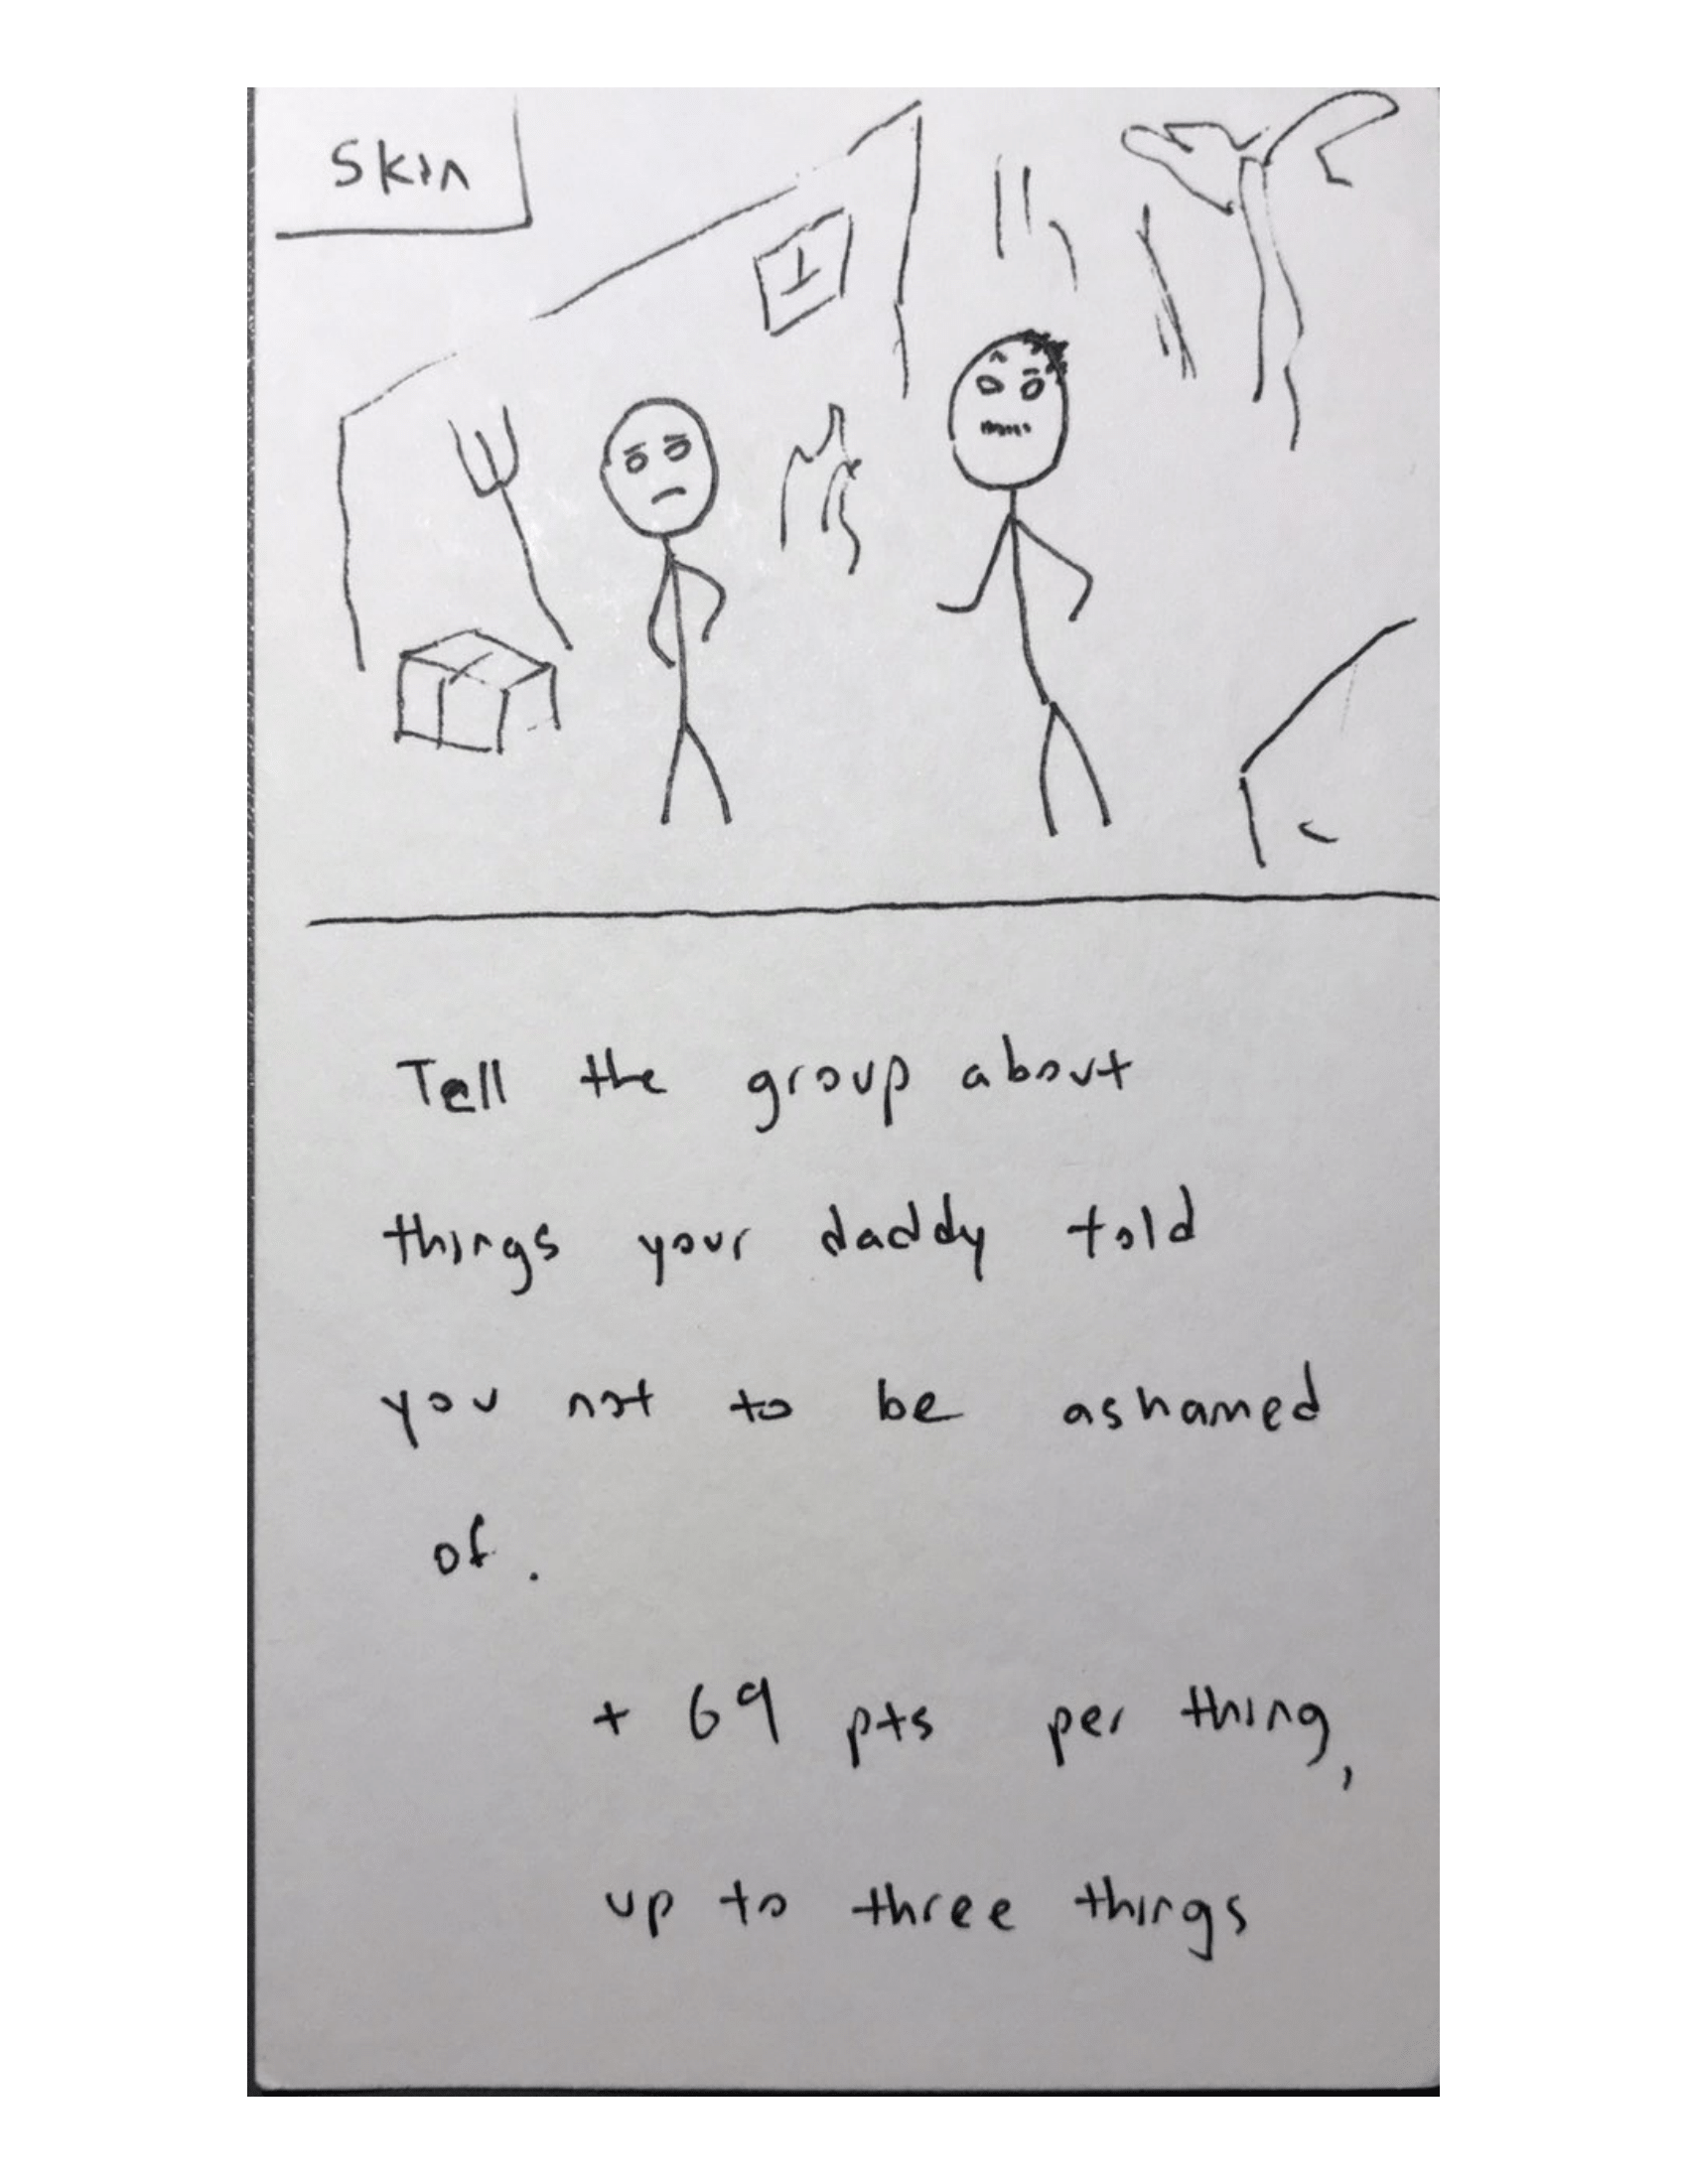 Skin
Tell the group about
things your daddy told
you not to be ashamed
of.
+ 69 pts per thing,
up to three things